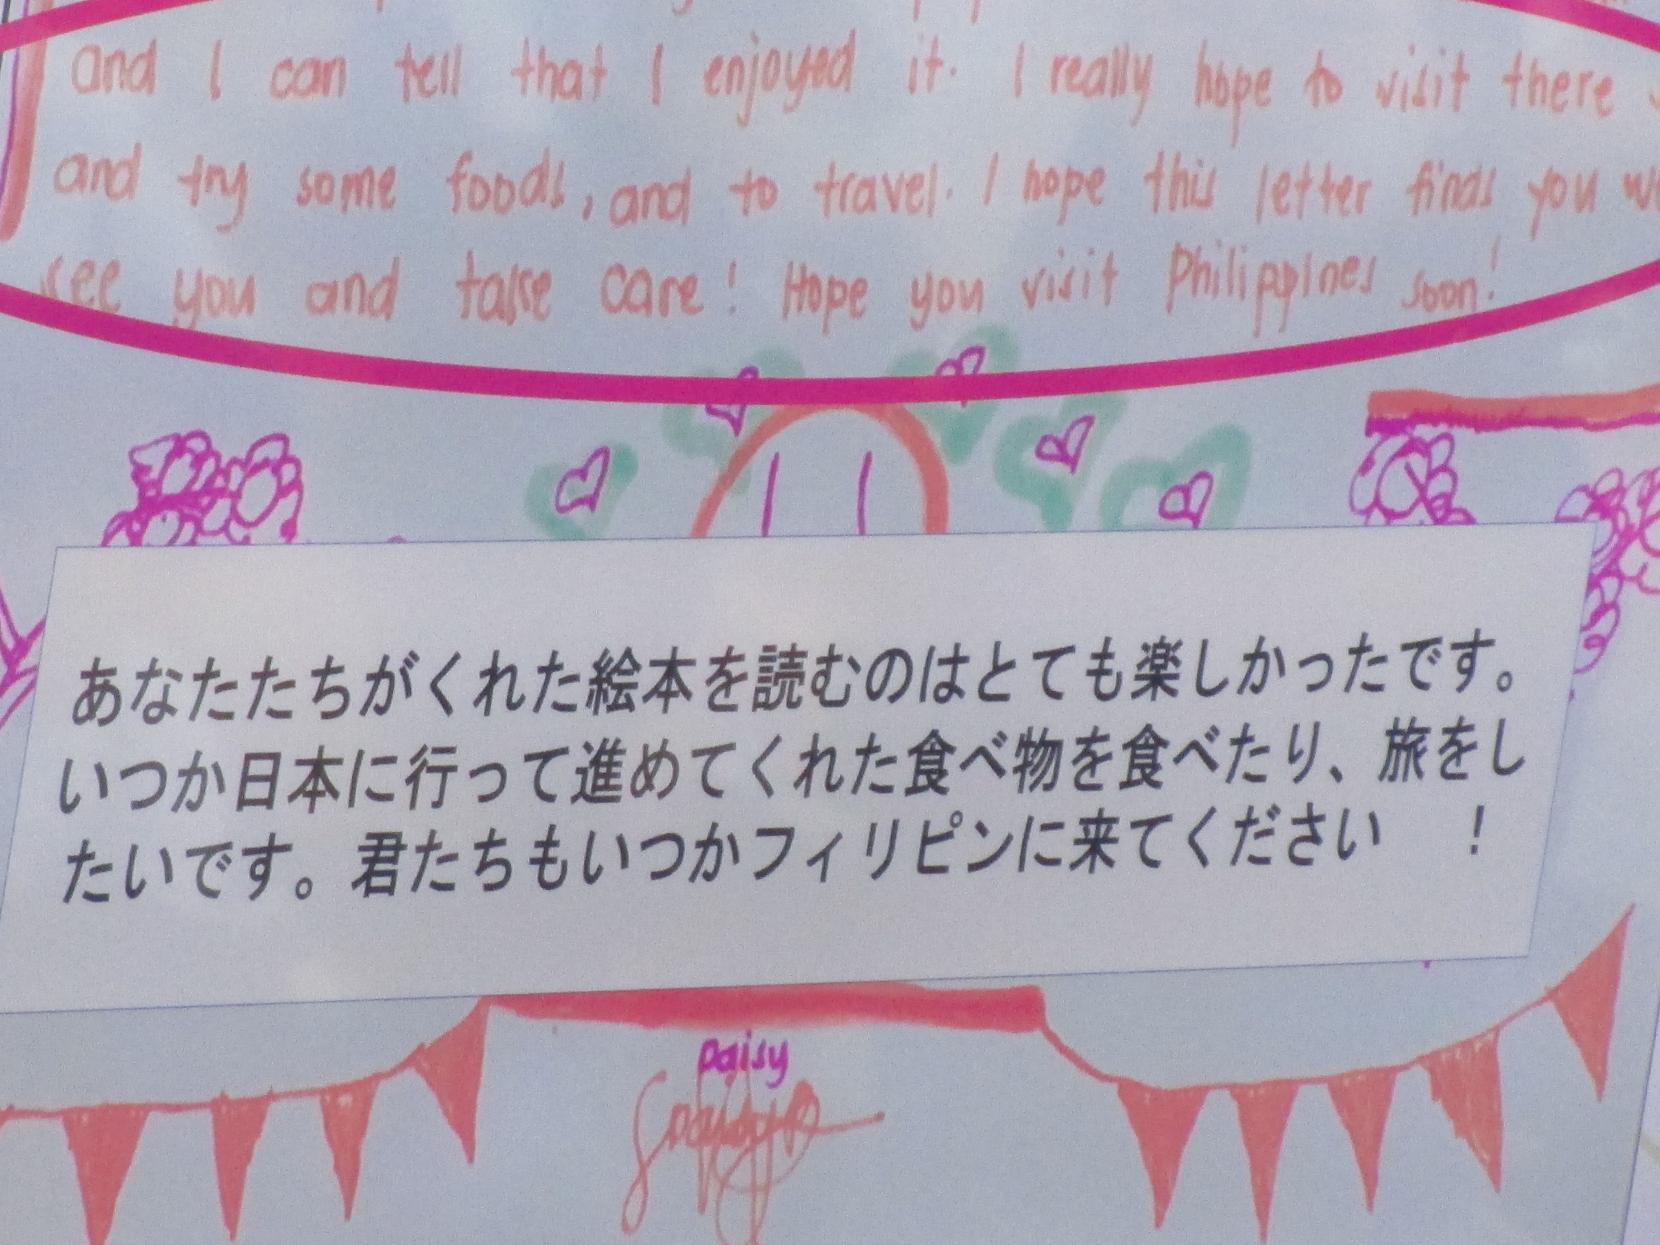 and I can tell that I enjoyed it. I really hope to visit there
and try some foods, and to travel. I hope this letter finds you
see you and take care! Hope you visit Philippines soon!
あなたたちがくれた絵本を読むのはとても楽しかったです。
いつか日本に行って進めてくれた食べ物を食べたり、旅をし
たいです。君たちもいつかフィリピンに来てください　！